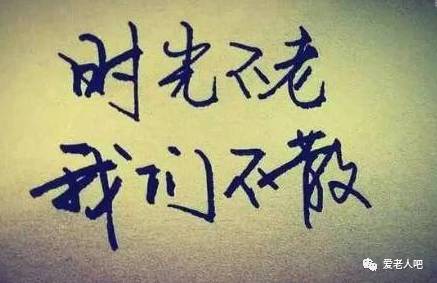 时光不老
我们不散
爱老人吧